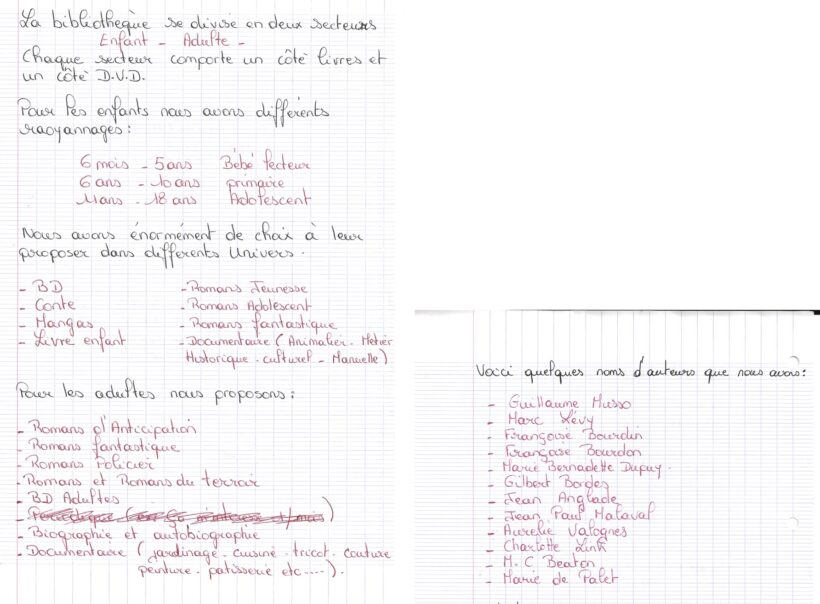 La bibliothèque se divise en deux secteurs
Enfant - Adulte -
Chaque secteur comporte un côté livres et
un côté D.V.D.
Pour les enfants nous avons différents
raoyannages :
6 mois - 5 ans Bébé lecteur
6 ans - 10 ans primaire
11 ans - 18 ans Adolescent
Nous avons énormément de choix à leur
proposer dans différents Univers.
- BD - Romans Jeunesse
- Conte - Romans Adolescent
- Mangas - Romans fantastique
- Livre enfant - Documentaire (Animalier - Métier
Historique - culturel - Manuelle)
Pour les adultes nous proposons :
- Romans d'Anticipation
- Romans fantastique
- Romans Policier
- Romans et Romans du terroir
- BD Adultes
- Biographie et autobiographie
- Documentaire (jardinage - cuisine - tricot - couture
peinture - patisserie etc ....).
Voici quelques noms d'auteurs que nous avons :
- Guillaume Musso
- Marc Lévy
- Françoise Bourdin
- Françoise Bourdon
- Marie Bernadette Dupuy.
- Gilbert Bordes
- Jean Anglade
- Jean Paul Malaval
- Aurélie Valognes
- Charlotte Link
- M. C Beaton
- Marie de Palet